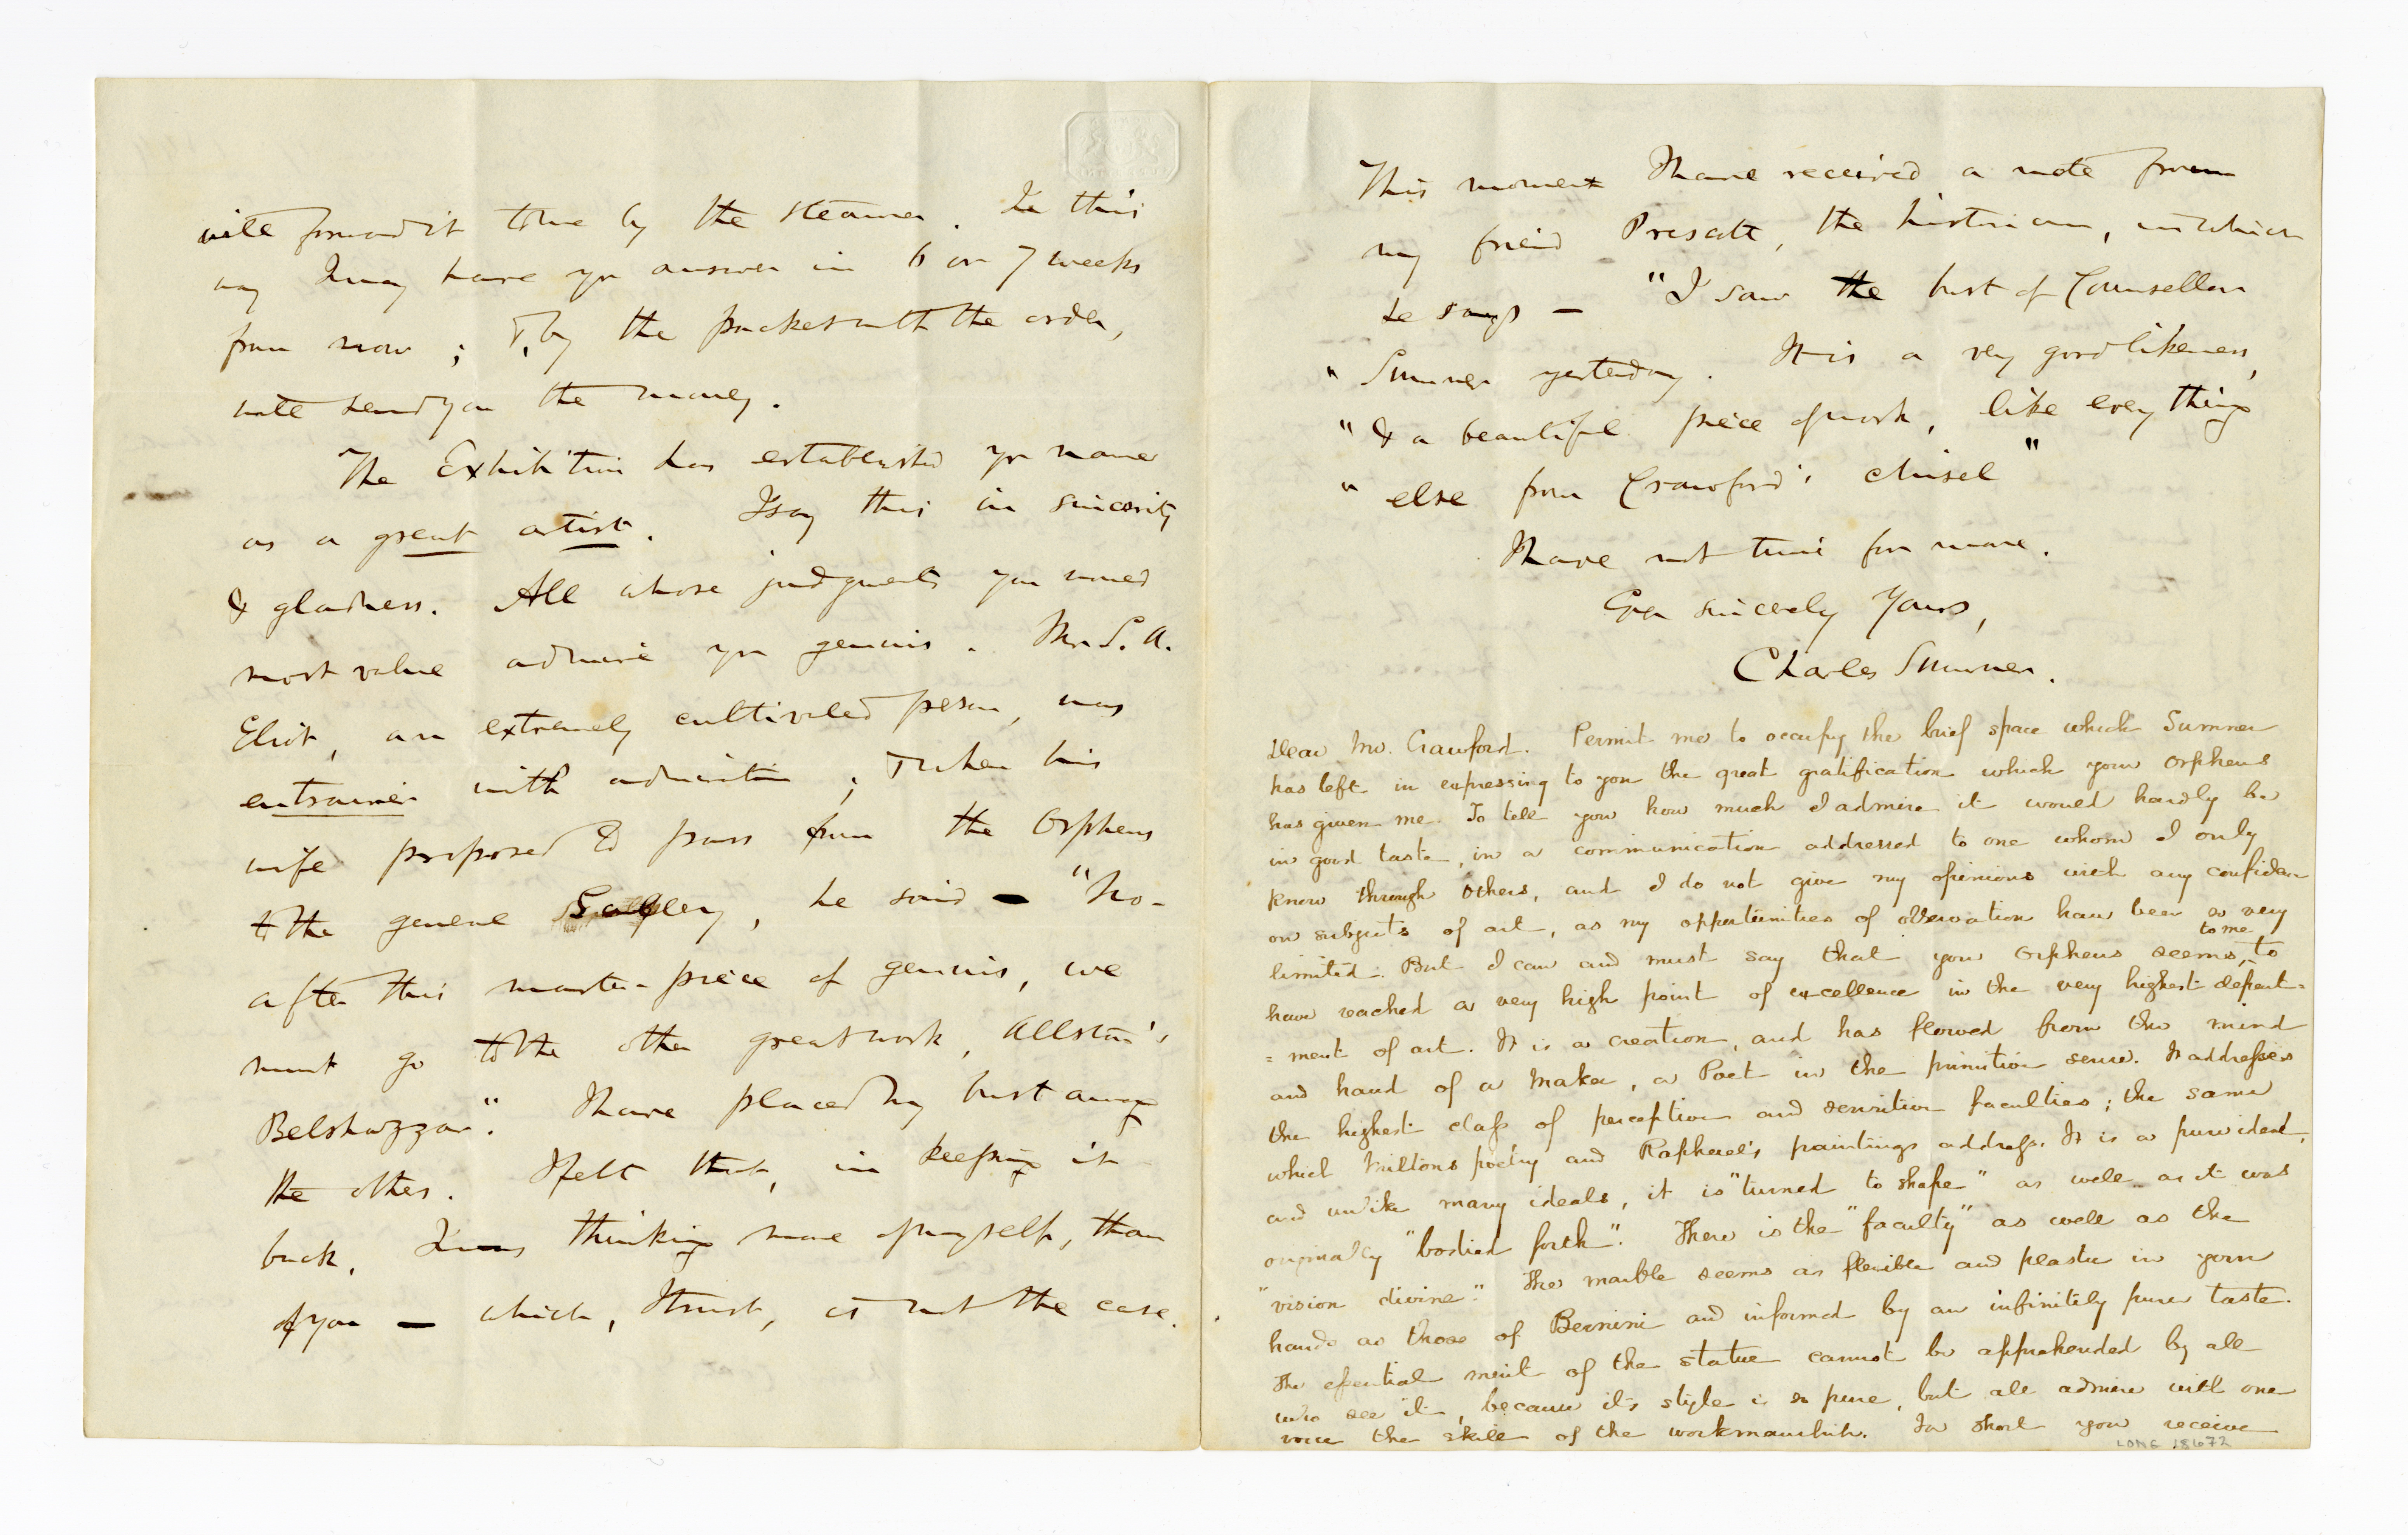 will forward it to me by the steamer. In this
way I may have yr answer in 6 or 7 weeks
from now; & by the packet with the order,
will send you the money.
The Exhibition has established yr name
as a great artist. I say this in sincerity
& gladness. All whose judgments you would
most value admire yr genius. Mr. S. A.
Eliot, an extremely cultivated person, was
entrainé with admiration; & when his
wife proposed to pass from the Orpheus
to the general Gallery, he said — "No-
after this master-piece of genius, we
must go to the other great work, Allston's
Belshazzar". I have placed my bust among
the others. I felt that, in keeping it
back, I was thinking more of myself, than
of you — which, I trust, is not the case.
This moment I have received a note from
my friend Prescott, the historian, in which
he says — "I saw the bust of Counsellor
" Sumner yesterday. It is a very good likeness,
" & a beautiful piece of work, like every thing
" else from Crawford's chisel"
I have not time for more.
Ever sincerely Yours,
Charles Sumner.
Dear Mr. Crawford. Permit me to occupy the brief space which Sumner
has left in expressing to you the great gratification which your Orpheus
has given me. To tell you how much I admire it would hardly be
in good taste, in a communication addressed to one whom I only
know through others, and I do not give my opinions with any confidence
on subjects of art, as my opportunities of observation have been so very
limited. But I can and must say that your Orpheus seems to me to
have reached a very high point of excellence in the very highest depart=
=ment of art. It is a creation, and has flowed from the mind
and hand of a Maker, a Poet in the primitive sense. It addresses
the highest class of perceptive and sensitive faculties; the same
which Miltons poetry and Raphael's paintings address. It is a pure ideal,
and unlike many ideals, it is "turned to shape" as well as it was
originally "bodied forth". There is the "faculty" as well as the
"vision divine". The marble seems as flexible and plastic in your
hands as those of Bernini and informed by an infinitely purer taste.
The essential merit of the statue cannot be apprehended by all
who see it, because its style is so pure, but all admire with one
voice the skill of the workmanship. In short you receive
LONG 18672